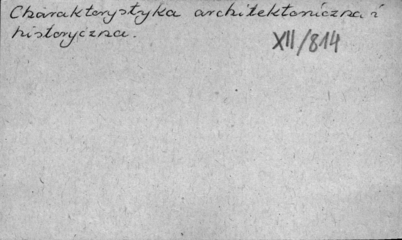 Charakterystyka architektoniczna i
historyczna.
XII/814